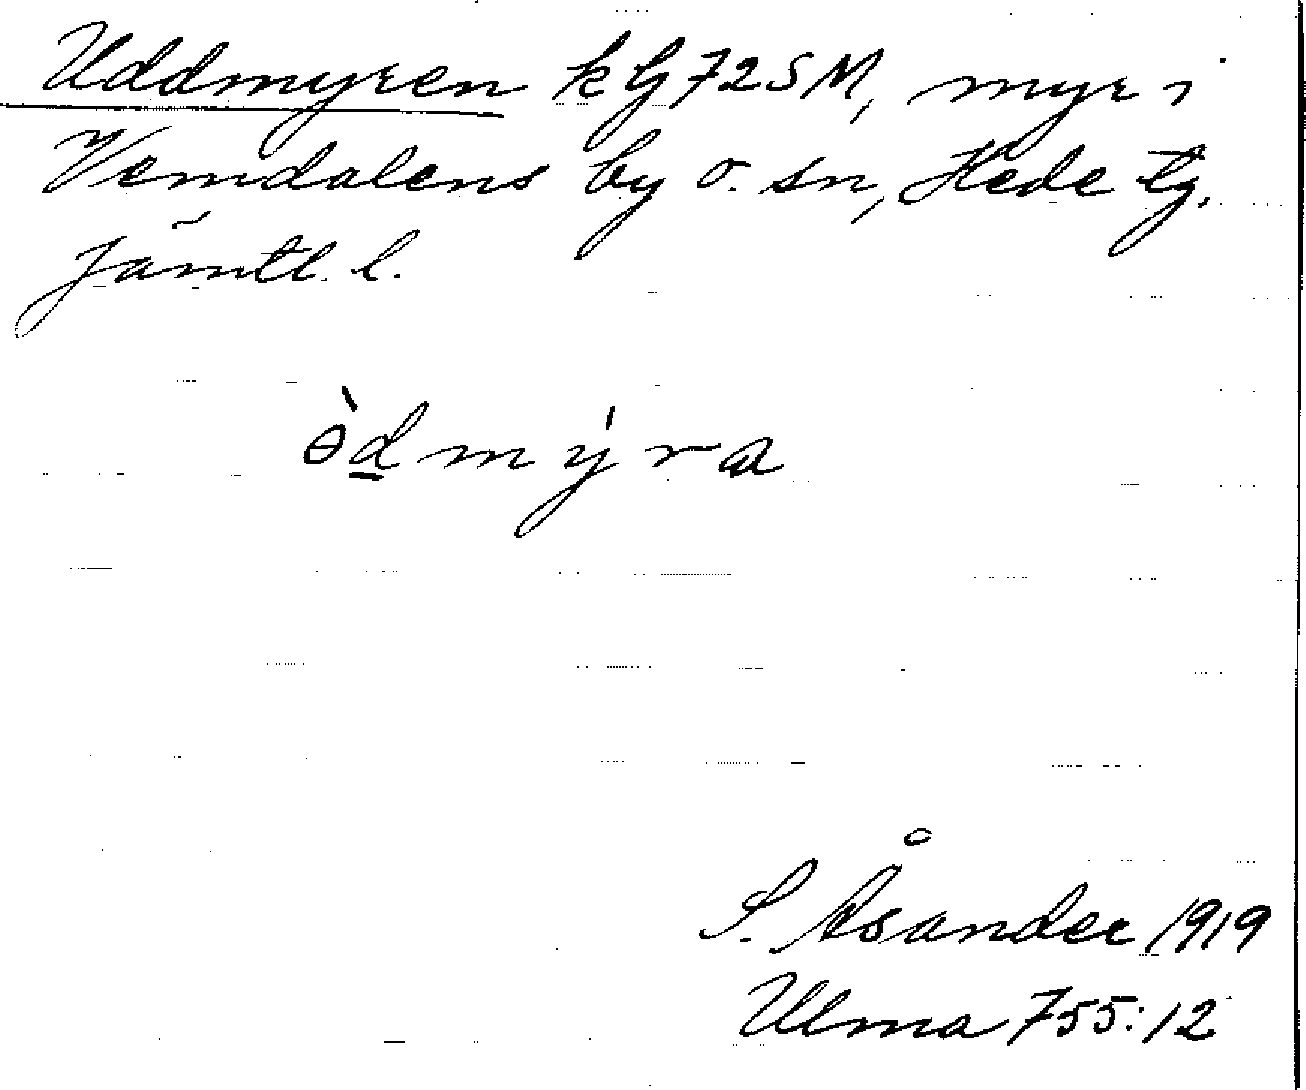 Uddmyren kG72SM, myr i
Vemdalens by o. sn, Hede tg.
Jämtl. l.
ɵ̀d̲mýra
S. Åsander 1919
Ulma 755:12